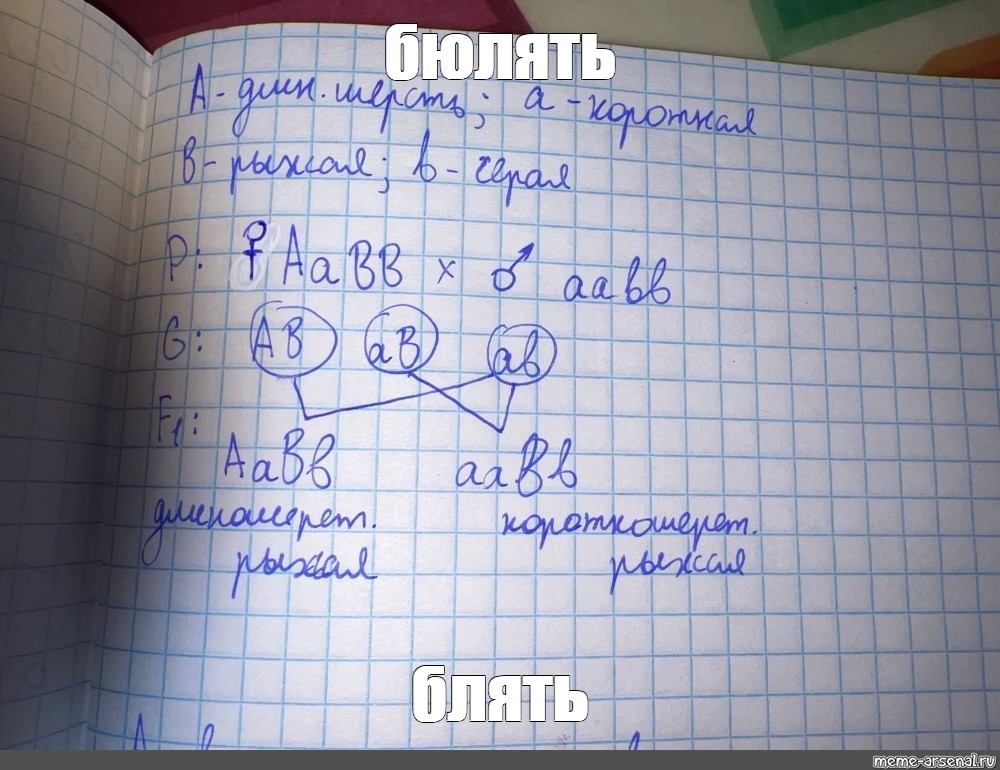 бюлять
А - длин. шерсть; а - короткая
В - рыжая; в - серая
P: ♀ АаВВ × ♂ аавв
G: АВ аВ ав
F1:
АаВв ааВв
длиношерст. короткошерст.
рыжая рыжая
блять
meme-arsenal.ru